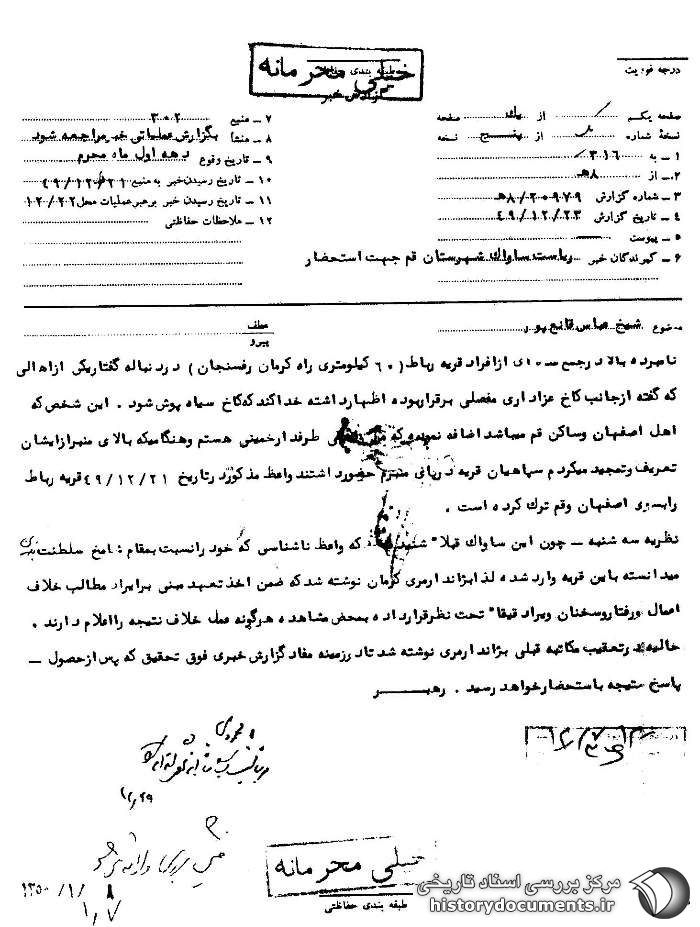 درجه فوریت
طبقه بندی حفاظتی
خیلی محرمانه
گزارش خبر
صفحه یکم از یک صفحه
نسخهٔ شماره از پنج نسخه
۱ ـ به ۳۱۶
۲ ـ از ۸هـ
۳ ـ شماره گزارش ۲۰۹۷۹/۸هـ
۴ ـ تاریخ گزارش ۴۹/۱۲/۲۳
۵ ـ پیوست
۶ ـ گیرندگان خبر ریاست ساواک شهرستان قم جهت استحضار
۷ ـ منبع ۳۰۲
۸ ـ منشأ بگزارش عملیاتی خبر مراجعه شود
۹ ـ تاریخ وقوع دهه اول ماه محرم
۱۰ ـ تاریخ رسیدن خبر به منبع ۴۹/۱۲/۲۱
۱۱ ـ تاریخ رسیدن خبر برهبر عملیات محل ۱۲/۲۲
۱۲ ـ ملاحظات حفاظتی
موضوع شیخ عباس قانع پور
عطف
پیرو
نامبرده بالا در جمع سه نفری از افراد قریه رباط (۶۰ کیلومتری راه کرمان رفسنجان) در دنباله گفتار یکی از اهالی
که گفته از جانب کاخ عزاداری مفصلی برقرار بوده اظهار داشته خدا کند که کاخ سیاه پوش شود . این شخص که
اهل اصفهان وساکن قم میباشد اضافه نموده که من طرفدار خمینی هستم وهنگامیکه بالای منبر از ایشان
تعریف وتمجید میکردم سپاهیان قریه در پای منبرم حضور داشتند واعظ مذکور در تاریخ ۴۹/۱۲/۲۱ قریه رباط
را بسوی اصفهان وقم ترک کرده است .
نظریه سه شنبه ـ چون این ساواک قبلا" شنیده که واعظ ناشناسی که خود را نسبت بمقام شامخ سلطنت
میدانسته باین قریه وارد شده لذا بژاندارمری کرمان نوشته شد که ضمن اخذ تعهد مبنی بر ایراد مطالب خلاف
اعمال ورفتار وسخنان ویرا دقیقا" تحت نظر قرار داده بمحض مشاهده هرگونه عمل خلاف نتیجه را اعلام دارند .
حالیه در تعقیب مکاتبه قبلی بژاندارمری نوشته شد تا در زمینه مفاد گزارش خبری فوق تحقیق که پس از حصول ـ
پاسخ نتیجه باستحضار خواهد رسید . رهبر
۱۲/۲۹
۱۳۵۰/۱/۸
۱/۷
خیلی محرمانه
طبقه بندی حفاظتی
مرکز بررسی اسناد تاریخی
historydocuments.ir